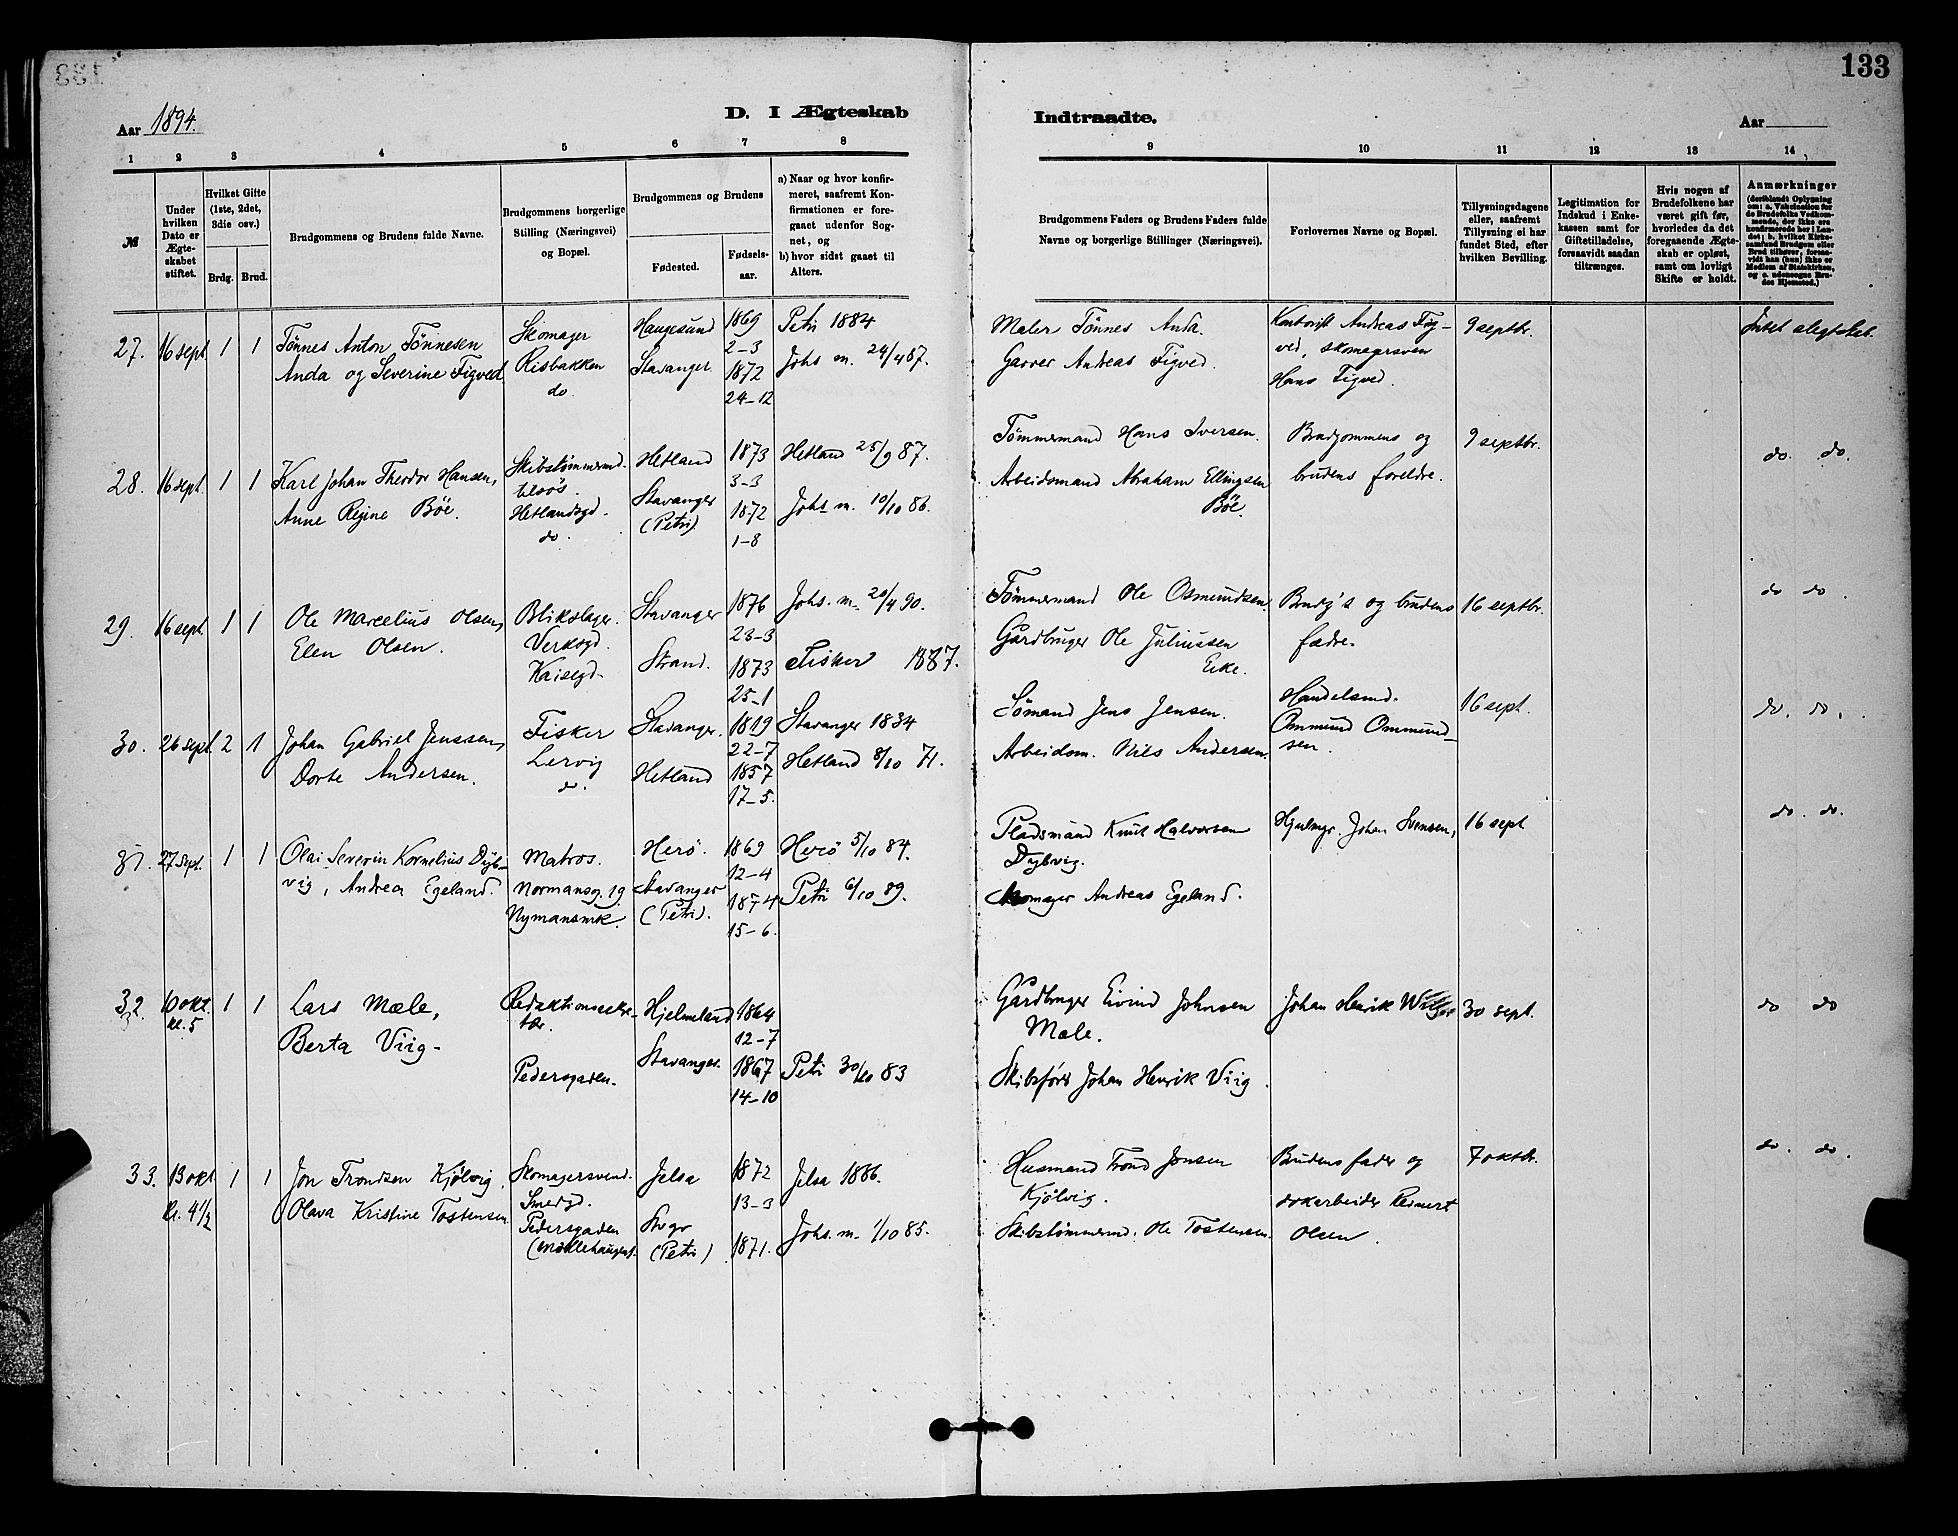 133
Aar 1894.
D. I Ægteskab
Indtraadte.
Aar
1 2 3 4 5 6 7 8 9 10 11 12 13 14
№
Under hvilken Dato er Ægteskabet stiftet.
Hvilket Gifte (1ste, 2det, 3die osv.)
Brdg. Brud.
Brudgommens og Brudens fulde Navne.
Brudgommens borgerlige Stilling (Næringsvei) og Bopæl.
Brudgommens og Brudens
Fødested.
Fødselsaar.
a) Naar og hvor konfirmeret, saafremt Konfirmationen er foregaaet udenfor Sognet, og
b) hvor sidst gaaet til Alters.
Brudgommens Faders og Brudens Faders fulde Navne og borgerlige Stillinger (Næringsvei).
Forlovernes Navne og Bopæl.
Tillysningsdagene eller, saafremt Tillysning ei har fundet Sted, efter hvilken Bevilling.
Legitimation for Indskud i Enkekassen samt for Giftetilladelse, forsaavidt saadan tiltrænges.
Hvis nogen af Brudefolkene har været gift før, hvorledes da det foregaaende Ægteskab er opløst, samt om lovligt Skifte er holdt.
Anmærkninger (deriblandt Oplysning om: a. Vakcination for de Brudefolks Vedkommende, der ikke ere konfirmerede her i Landet; b. hvilket Kirkesamfund Brudgom eller Brud tilhører, forsaavidt han (hun) ikke er Medlem af Statskirken, og c. udensogns Brudes Hjemsted.)
27. 16 sept 1 1
Tönnes Anton Tönnesen
Anda og Severine Figved
Skomager
Risbakken
do.
Haugesund
Stavanger
1869
2-3
1872
24-12
Petri 1884
Johs m. 24/4 87.
Maler Tönnes Anda.
Garver Andreas Figved.
Kontorist Andreas Fig-
ved, skomagersven
Hans Figved.
9 septbr.
Intet slegtskab.
28. 16 sept. 1 1
Karl Johan Theodor Hansen,
Anne Regine Böe.
Skibstömmermd.
tilsös.
Hetlandsgd.
do.
Hetland
Stavanger
(Petri)
1873
3-3
1872
1-8
Hetland 25/9 87.
Johs m. 10/10 86.
Tömmermand Hans Iversen.
Arbeidsmand Abraham Ellingsen
Böe.
Brudgommens og
brudens foreldre.
9 septbr.
do. do.
29. 16 sept 1 1
Ole Marcelius Olsen,
Elen Olsen.
Blikslager.
Verksgd.
Kaisegd.
Stavanger
Strand.
1876
23-3
1873
25-1
Johs. m. 20/4 90.
Fisker 1887.
Tömmermand Ole Osmundsen.
Gardbruger Ole Juliussen
Eike.
Brudg's og brudens
fædre.
16 septbr.
do do.
30. 26 sept 2 1
Johan Gabriel Jenssen,
Dorte Andersen.
Fisker
Lervig
do.
Stavanger.
Hetland
1819
22-7
1857
17-5.
Stavanger 1834
Hetland 8/10 71.
Sömand Jens Jensen.
Arbeidsm. Nils Andersen.
Handelsmd.
Ommund Ommund-
sen.
16 sept.
do. do.
31. 27 sept. 1 1
Olai Severin Kornelius Dyb-
vig, Andrea Egeland.
Matros.
Normansg. 19
Nymansmk.
Herö.
Stavanger
(Petri).
1869
12-4
1874
15-6.
Herö 5/10 84.
Petri 6/10 89.
Pladsmand Knut Halvorsen
Dybvig.
Skomager Andreas Egeland.
Hjulmgr. Johan Svensen,
16 sept
do. do.
32. 10 okt. 1 1
kl. 5
Lars Mæle,
Berta Viig
Redaktionssekre-
tær.
Pedersgaden.
Hjelmeland
Stavanger.
1864
12-7
1867
14-10
Petri 30/10 83
Gardbruger Eivind Johnsen
Mæle.
Skibsförer Johan Henrik Viig.
Johan Henrik
30 sept.
do do
33. 13 okt 1 1
kl. 4 1/2
Jon Trondsen Kjölvig,
Olava Kristine Tostensen
Skomagersvend.
Smedgd.
Pedersgaden
Jelsa
Stvgr
(Petri)
1872
13-3
1871.
Jelsa 1886.
Johs. m. 1/10 85.
Husmand Trond Jonsen
Kjölvig.
Skibstömmermd. Ole Tostensen.
Brudens fader og
dokarbeider Reinert
Olsen.
7 oktbr.
do. do.